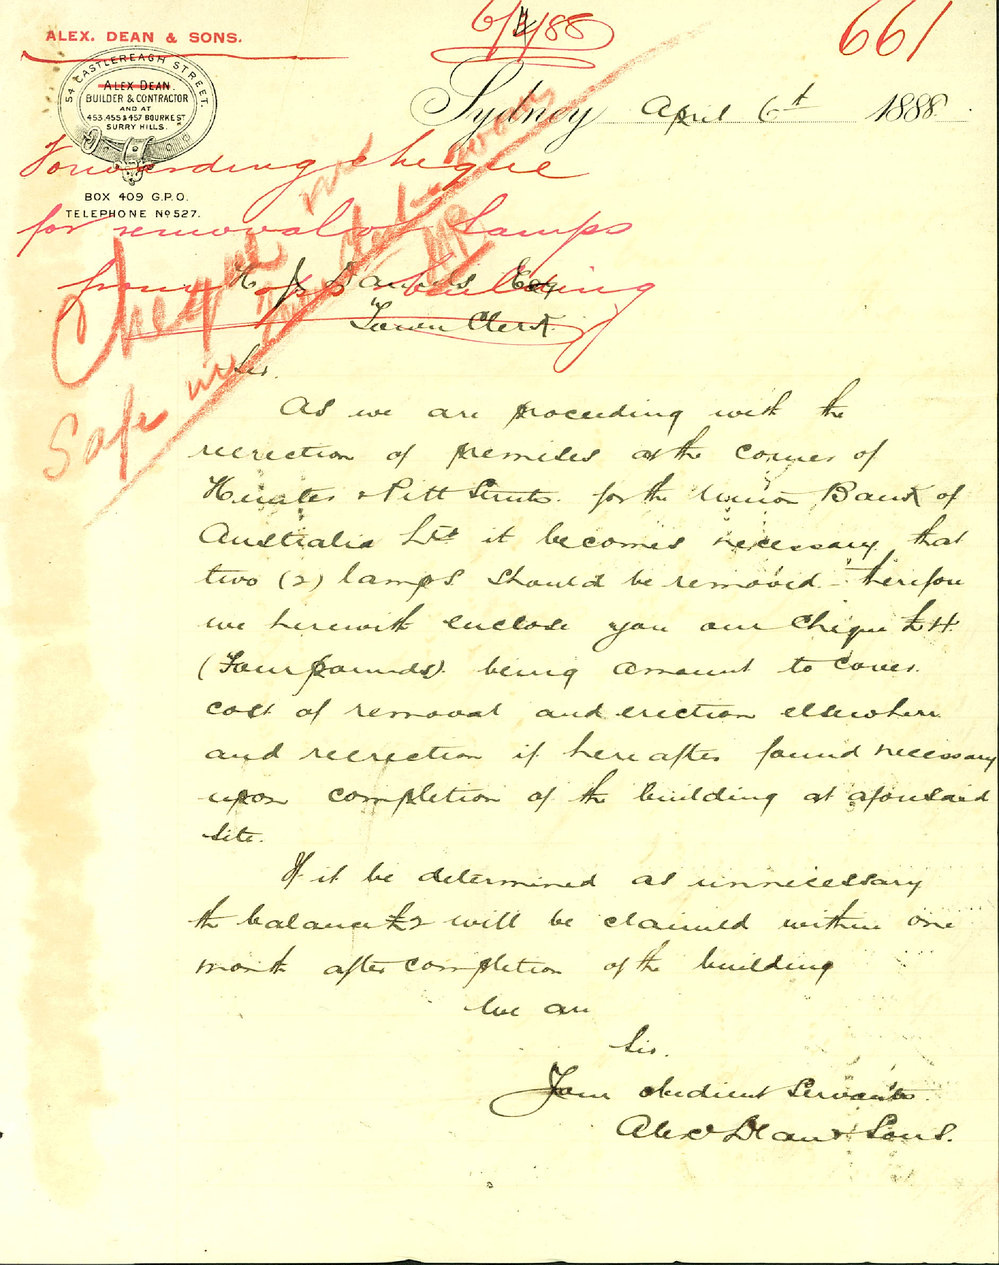 ALEX. DEAN & SONS.
6/4/88
661
54 CASTLEREAGH STREET.
ALEX DEAN.
BUILDER & CONTRACTOR
AND AT
453.455 & 457 BOURKE ST
SURRY HILLS.
BOX 409 G.P.O.
TELEPHONE No 527.
Sydney April 6th 1888
Forwarding cheque
for removal of Lamps
from building
Cheque
Safe in
H J Daniels Esq
Town Clerk
Sir.
As we are proceeding with the
reerection of premises at the corner of
Hunter & Pitt Streets for the Union Bank of
Australia Ltd it becomes necessary that
two (2) lamps should be removed - therefore
we herewith enclose you our cheque £4.
(Four pounds) being amount to cover
cost of removal and erection elsewhere
and reerection if hereafter found necessary
upon completion of the building at aforesaid
site.
If it be determined as unnecessary
the balance £2 will be claimed within one
month after completion of the building
We are
Sir.
Your obedient Servants
Alex Dean & Sons.